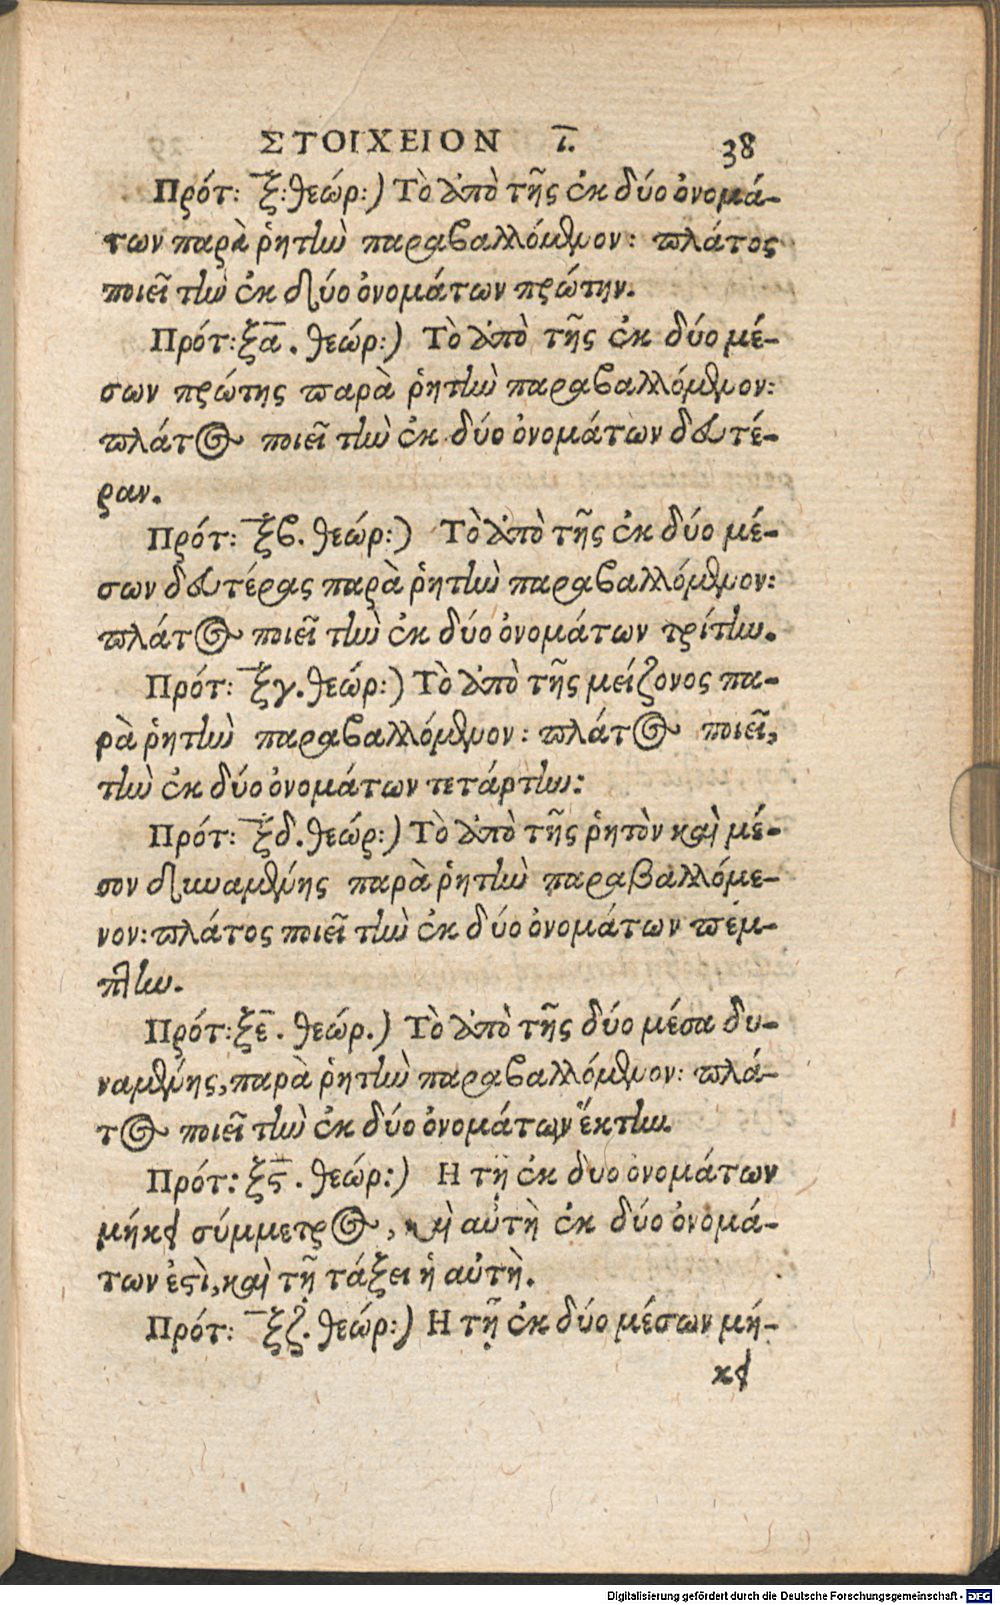 ΣΤΟΙΧΕΙΟΝ ι. 38
Πρότ: ξ: θεώρ:) Τὸ ἀπὸ τῆς ἐκ δύο ὀνομά-
των παρὰ ῥητὴν παραβαλλόμενον: πλάτος
ποιεῖ τὴν ἐκ δύο ὀνομάτων πρώτην.
Πρότ: ξα. θεώρ:) Τὸ ἀπὸ τῆς ἐκ δύο μέ-
σων πρώτης παρὰ ῥητὴν παραβαλλόμενον:
πλάτος ποιεῖ τὴν ἐκ δύο ὀνομάτων δευτέ-
ραν.
Πρότ: ξϐ. θεώρ:) Τὸ ἀπὸ τῆς ἐκ δύο μέ-
σων δευτέρας παρὰ ῥητὴν παραβαλλόμενον:
πλάτος ποιεῖ τὴν ἐκ δύο ὀνομάτων τρίτην.
Πρότ: ξγ. θεώρ:) Τὸ ἀπὸ τῆς μείζονος πα-
ρὰ ῥητὴν παραβαλλόμενον: πλάτος ποιεῖ,
τὴν ἐκ δύο ὀνομάτων τετάρτην:
Πρότ: ξδ. θεώρ:) Τὸ ἀπὸ τῆς ῥητὸν καὶ μέ-
σον δυναμένης παρὰ ῥητὴν παραβαλλόμε-
νον: πλάτος ποιεῖ τὴν ἐκ δύο ὀνομάτων πέμ-
πτην.
Πρότ: ξε. θεώρ.) Τὸ ἀπὸ τῆς δύο μέσα δυ-
ναμένης, παρὰ ῥητὴν παραβαλλόμενον: πλά-
τος ποιεῖ τὴν ἐκ δύο ὀνομάτων ἕκτην.
Πρότ: ξϛ. θεώρ:) Η τῇ ἐκ δυο ὀνομάτων
μήκει σύμμετρος, κὴ αὐτὴ ἐκ δύο ὀνομά-
των ἐστὶ, καὶ τῇ τάξει ἡ αὐτὴ.
Πρότ: ξζ. θεώρ:) Η τῇ ἐκ δύο μέσων μή-
κει
Digitalisierung gefördert durch die Deutsche Forschungsgemeinschaft - DFG